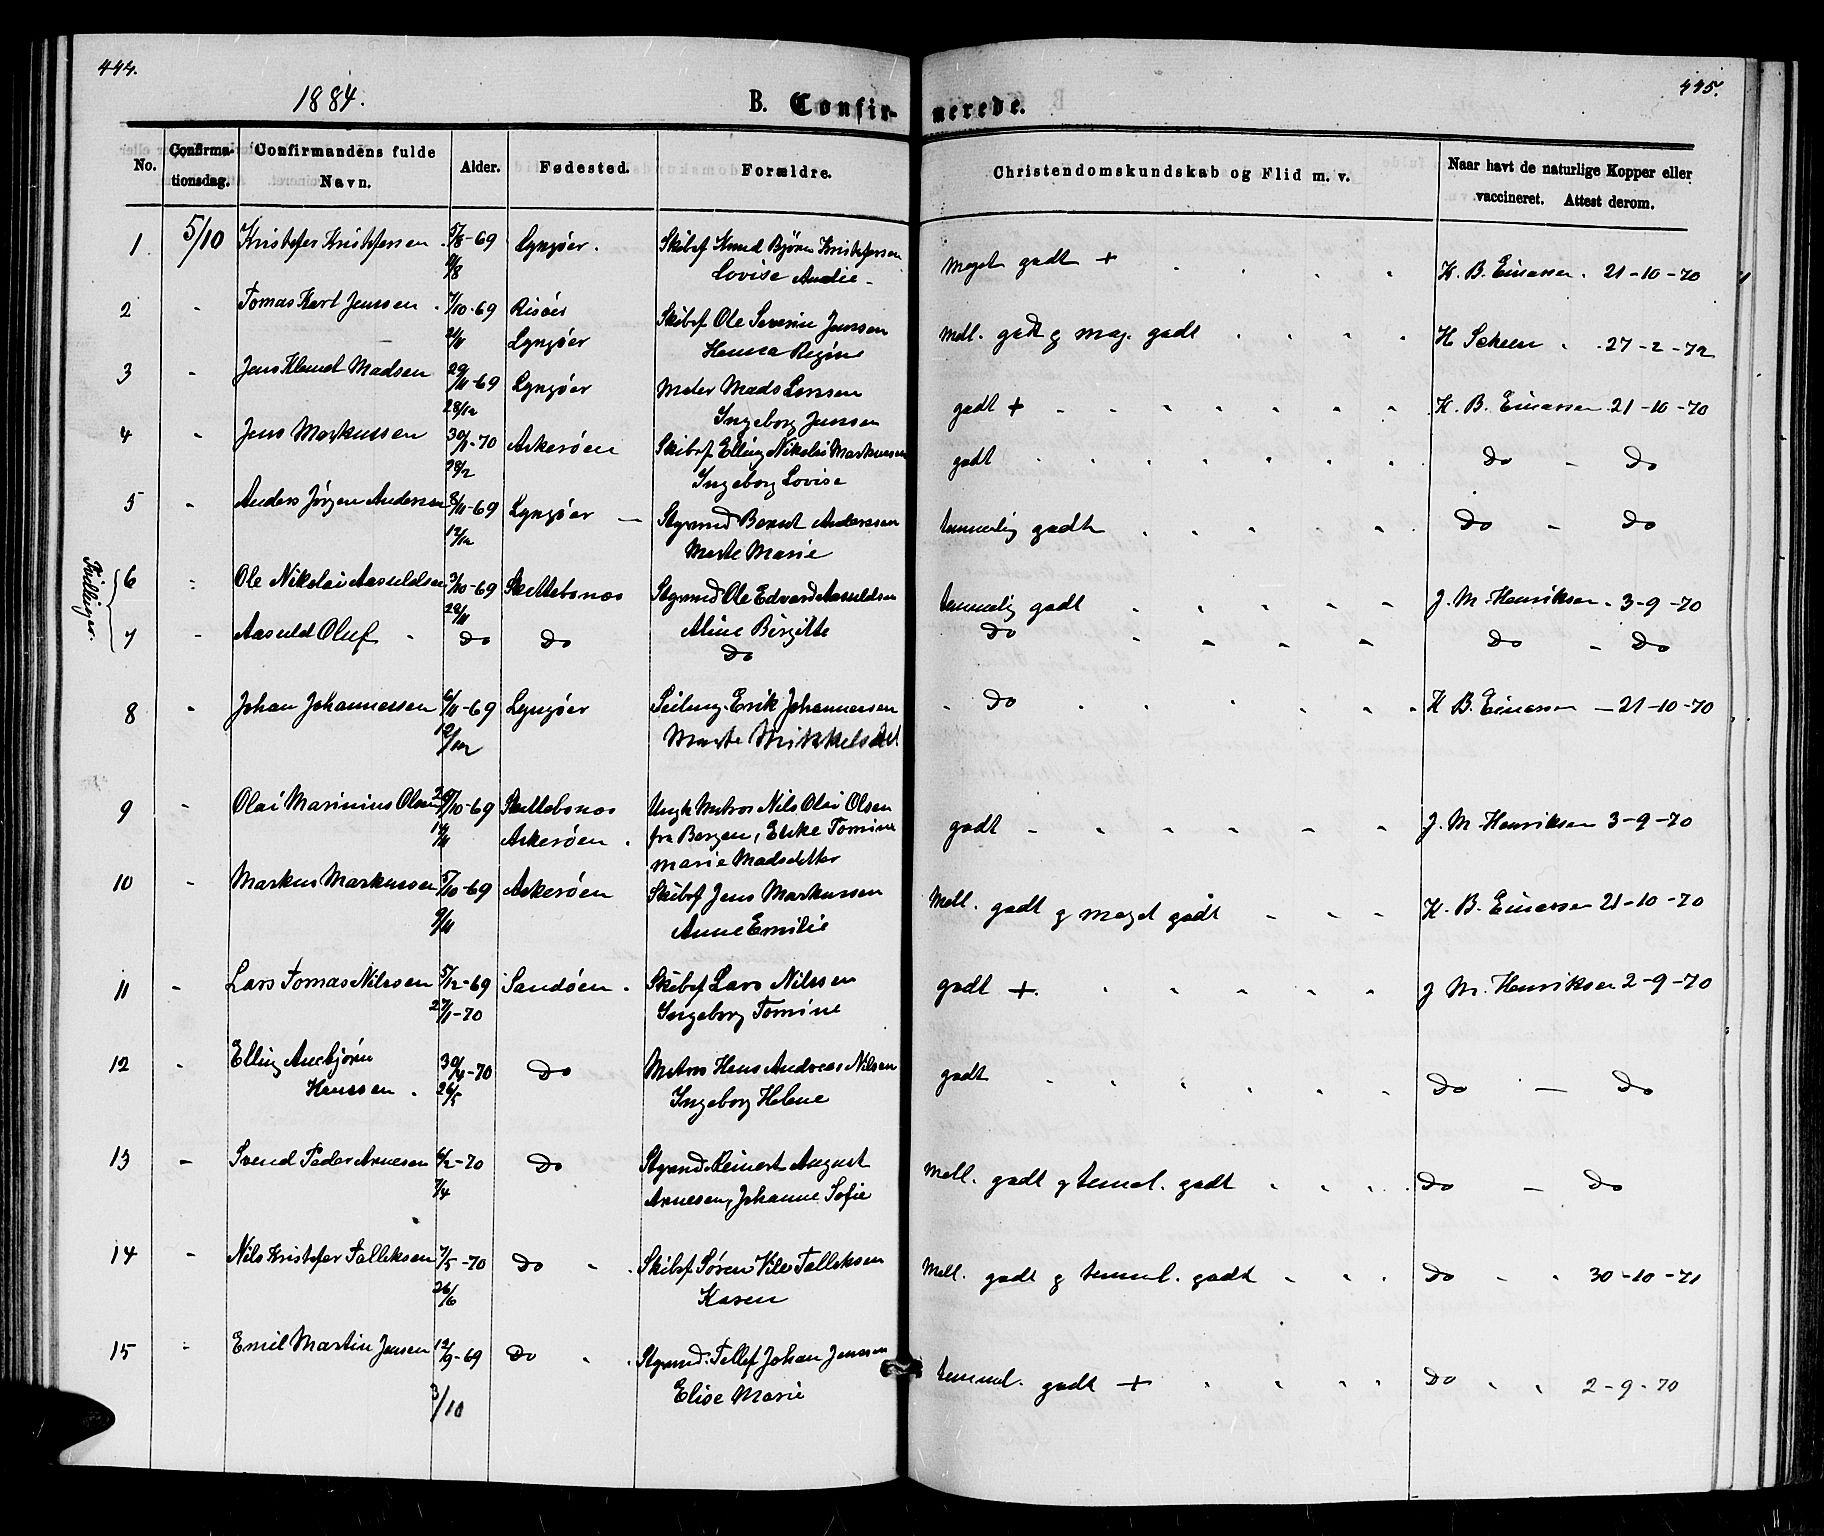 444.
445.
1884.
B. Confir-
merede.
No.
Confirma-
tionsdag.
Confirmandens fulde
Navn.
Alder.
Fødested.
Forældre.
Christendomskundskab og Flid m. v.
Naar havt de naturlige Kopper eller
vaccineret. Attest derom.
1 5/10 Kristofer Kristofersen 5/8-69 Lyngøer. Skibsf Knud Bjørn Kristofersen
Lovise Amalie
Meget godt + K. B. Einersen. 21-10-70
2 Tomas Kort Jenssen 7/10-69 Risøer Skibsf Ole Severin Jenssen
21/11 Lyngøer Hanna Regine
Mell. godt g meg. godt H Scheen 27-2-72
3 Jens Klemet Madsen 29/11-69 Lyngøer Mster Mads Larssen
28/12 Ingeborg Jenssen
godt + K. B. Einersen 21-10-70
4 Jens Markussen 30/1-70 Askerøen Skibsf Elling Nikolai Markussen
28/2 Ingeborg Lovise
godt Do - Do
5 Anders Jørgen Andersen 8/11-69 Lyngøer Styrmd Bernt Anderssen
12/12 Marte Marie
temmelig godt Do - Do
Tvillinger.
6 Ole Nikolai Aasuldsen 3/10-69 Skettebonæs Styrmd Ole Edvard Aasuldsen
29/11 Aline Birgitte
temmelig godt J. M. Henriksen. 3-9-70
7 Aasuld Oluf Do Do Do
Do Do - Do
8 Johan Johannessen 6/11-69 Lyngøer Seilmg. Erik Johannessen
12/12 Marte Mikkelsdet
Do K B. Einersen - 21-10-70
9 Olai Marinius Olsen 25/10-69 Skettebonæs Ungk Matros Nils Olai Olsen
14/11 Askerøen. fra Bergen, Enke Tomine
Marie Madsdetter
godt J. M. Henriksen 3-9-70
10 Markus Markussen 5/10-69 Askerøen Skibsf Jens Markussen
9/11 Anne Emilie
Mell. godt g meget godt K. B. Einersen 21-10-70
11 Lars Tomas Nilssen 5/12-69 Sandøen. Skibsf Lars Nilssen
27/1-70 Ingeborg Tomine
godt + J M. Henriksen 2-9-70
12 Elling Ansbjørn 30/4-70 Do Matros Hans Andreas Nilsen
Hanssen. 26/5 Ingeborg Helene
godt Do - Do
13 Svend Peder Arnesen 6/2-70 Do Styrmd Reinert August
7/4 Arnesen, Johanne Sofie
Mell. godt g temmel. godt Do - Do
14 Nils Kristofer Tallaksen 7/5-70 Do Skibsf Søren Vile Tallaksen
26/6 Karen
Mell. godt g temmel. godt Do 30-10-71
15 Emil Martin Jensen 12/9-69 Do Styrmd. Tellef Johan Jenssen
3/10 Elise Marie
temmel. godt + Do 2-9-70